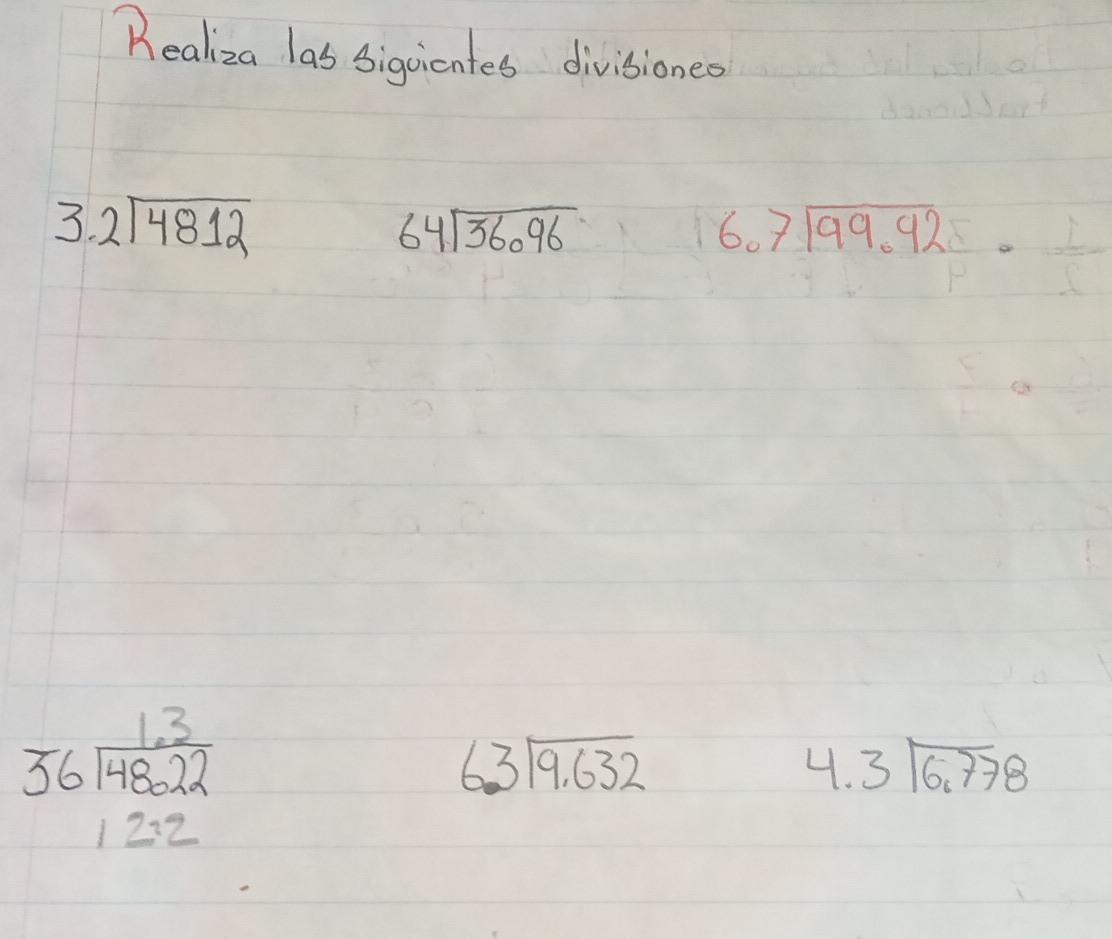 Realiza las siguientes divisiones
3.2 4812 64 36.96 6.7 99.92
1.3
36 48.22 6.3 9.632 4.3 6.778
12.2